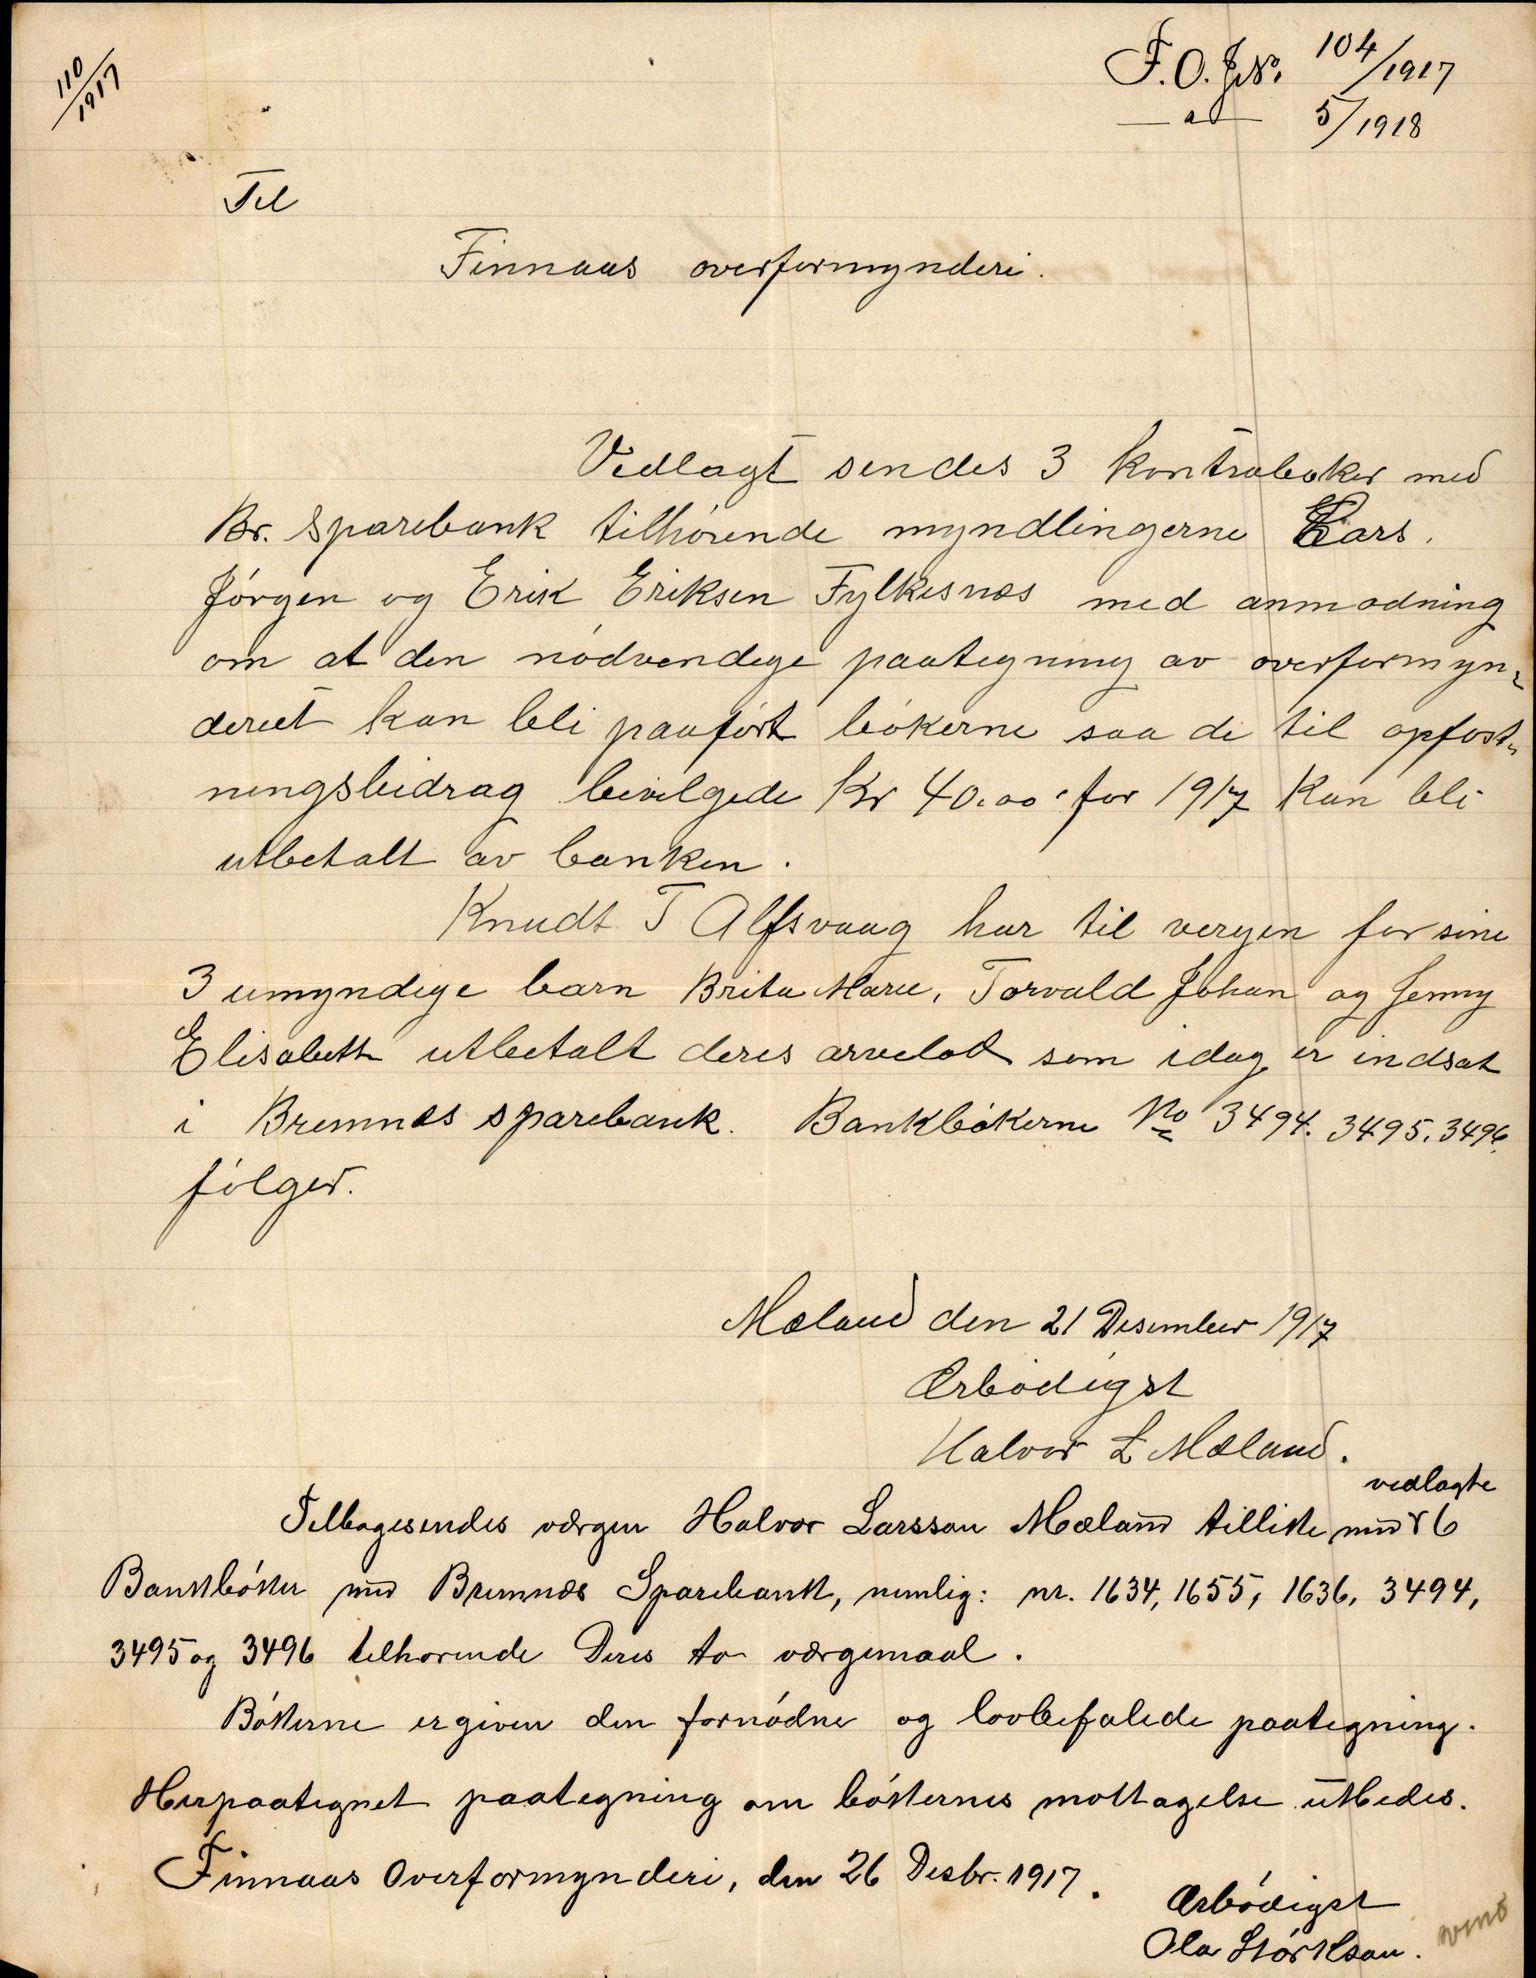 110/1917
F. O. J.No. 104/1917
— " — 5/1918
Til
Finnaas overformynderi.
Vedlagt sendes 3 kontrabøker med
Br. Sparebank tilhørende myndlingerne Lars.
Jørgen og Erik Eriksen Fylkesnæs med anmodning
om at den nødvendige paategning av overformyn-
deriet kan bli paaført bøkerne saa de til opfost-
ningsbidrag bevilgede Kr 40.00 for 1917 kan bli
utbetalt av banken.
Knudt T Alfsvaag har til vergen for sine
3 umyndige barn Brita Marie, Torvald Johan og Jenny
Elisabeth utbetalt deres arvelod som idag er indsat
i Bremnæs sparebank. Bankbøkerne No 3494. 3495. 3496.
følger.
Mæland den 21 Desember 1917
Ærbødigst
Halvor L Mæland.
vedlagte
Tilbagesendes værgen Halvor Larsson Mæland tillike med 6
Bankbøker med Bremnæs Sparebank, nemlig: nr. 1634, 1655, 1636, 3494,
3495 og 3496 tilhørende Deres to værgemaal.
Bøkerne er given den fornødne og lovbefalede paategning.
Herpaategnet paategning om bøkernes mottagelse utbedes.
Finnaas Overformynderi, den 26 Desbr. 1917.
Ærbødigst
Ola Størkson.